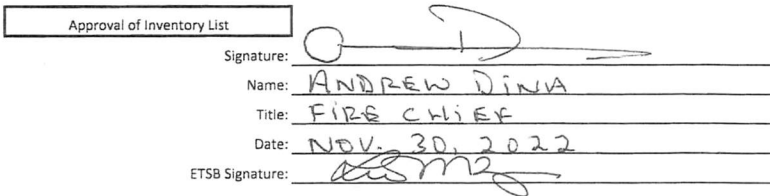 Approval of Inventory List
Signature:
Name: ANDREW DINA
Title: FIRE CHIEF
Date: NOV. 30, 2022
ETSB Signature: